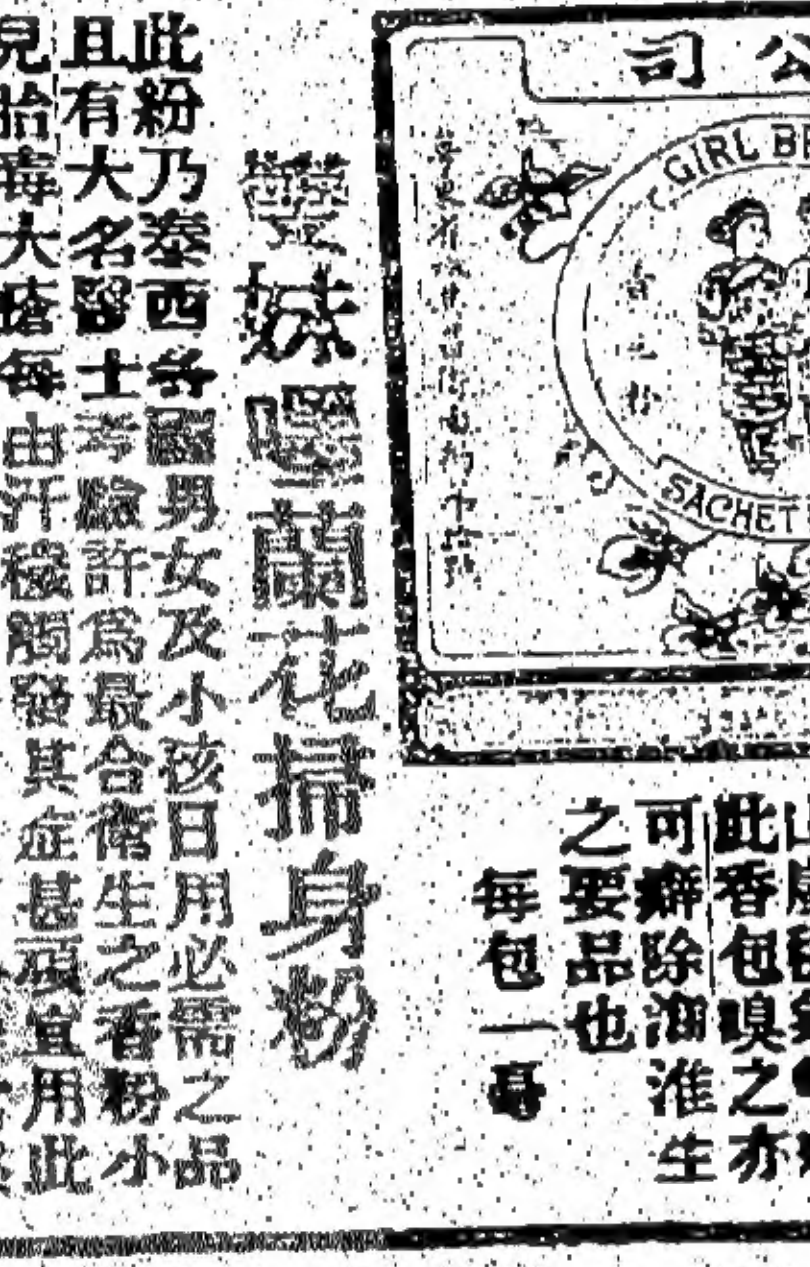 公司
GIRL
SACHET
此香包嗅之亦
可癖除溷淮生
之要品也
每包一毫
雙妹嚜蘭花掃身粉
此粉乃泰西各國男女及小孩日用必需之品
且有大名醫士考驗許爲最合衛生之香粉小
兒胎毒大瘡每由汗穢觸發其症甚頑宜用此